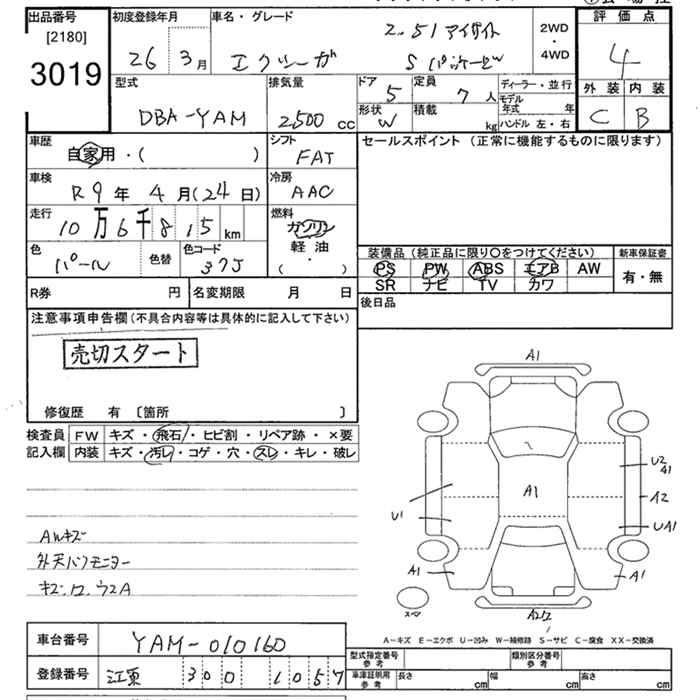 出品番号 初度登録年月 車名・グレード 評価点
[2180] 2.5i アイサイト 2WD
3019 26 3月 エクシーガ Sパッケージ ・ 4WD 4
型式 排気量 ドア 定員 ディーラー・並行 外装 内装
DBA-YAM 2,500 cc 5 7人 モデル年式 年 C B
形状 W 積載 kg ハンドル 左・右
車歴 シフト セールスポイント(正常に機能するものに限ります)
自家用・( ) FAT
車検 冷房
R9年 4月(24日) AAC
走行 燃料
10万6千815km ガソリン
軽油
色 色替 色コード ・
パール 37J ( )
装備品(純正品に限り〇をつけてください) 新車保証書
PS PW ABS エアB AW 有・無
SR ナビ TV カワ
R券 円 名変期限 月 日 後日品
注意事項申告欄(不具合内容等は具体的に記入して下さい)
売切スタート
修復歴 有 〔箇所 〕
検査員 FW キズ・飛石・ヒビ割・リペア跡・×要
記入欄 内装 キズ・汚レ・コゲ・穴・スレ・キレ・破レ
AWキズ
キズ.ワ.ウスA
A1
U2
A1
A1
A2
U1
UA1
A1
A1
スペア
A-キズ E-エクボ U-凹み W-補修跡 S-サビ C-腐食 XX-交換済
車台番号 YAM-010160
型式指定番号 参考 類別区分番号 参考
登録番号 300 1057
車庫証明用 参考 長さ cm 幅 cm 高さ cm